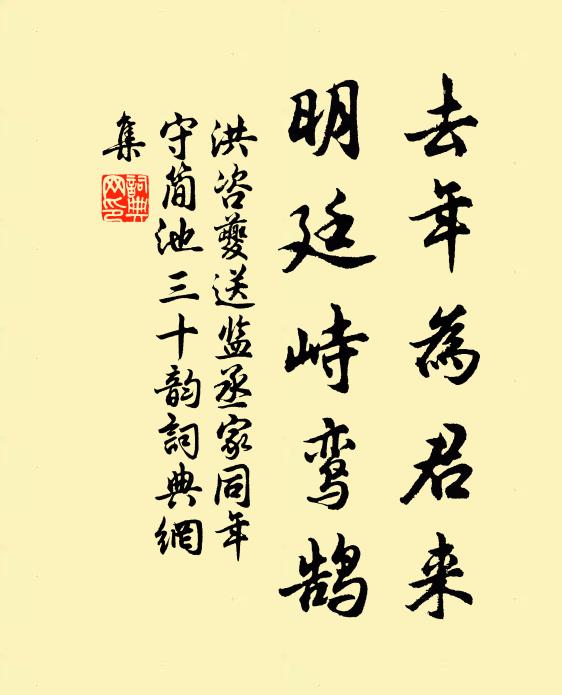 去年為君来
明廷峙鸾鹄
洪咨夔送监丞家同年
守简池三十韵詞典網
集
詞典網印